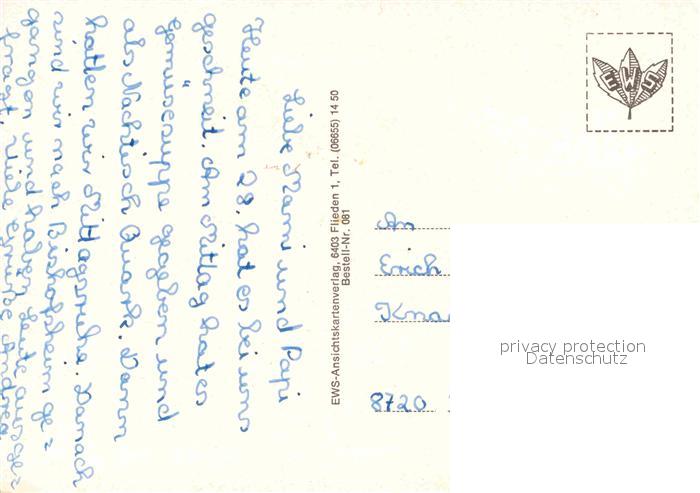 Liebe Mami und Papi
Heute am 28. hat es bei uns
geschneit. Am Mittag hat es
Gemüsesuppe gegeben und
als Nachtisch Quark. Dann
hatten wir Mittagsruhe. Danach
sind wir nach Bischofsheim ge=
gangen und haben Leute ausge=
fragt. Viele Grüße Andrea
EWS-Ansichtskartenverlag, 6403 Flieden 1, Tel. (06655) 14 50
Bestell-Nr. 081
EWS
An
Erich
Kna
8720
privacy protection
Datenschutz